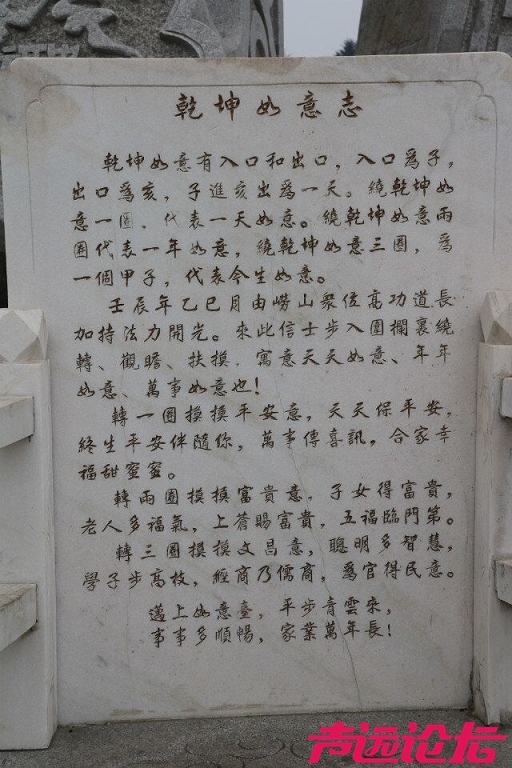 乾坤如意志
乾坤如意有入口和出口，入口爲子，
出口爲亥，子進亥出爲一天。繞乾坤如
意一圈，代表一天如意。繞乾坤如意兩
圈代表一年如意，繞乾坤如意三圈，爲
一個甲子，代表今生如意。
壬辰年乙巳月由嶗山衆位高功道長
加持法力開光。來此信士步入圈欄裏繞
轉、觀瞻、扶摸，寓意天天如意、年年
如意、萬事如意也！
轉一圈摸摸平安意，天天保平安，
終生平安伴隨你，萬事傳喜訊，合家幸
福甜蜜蜜。
轉兩圈摸摸富貴意，子女得富貴，
老人多福氣，上蒼賜富貴，五福臨門第。
轉三圈摸摸文昌意，聰明多智慧，
學子步高枝，經商乃儒商，爲官得民意。
邁上如意臺，平步青雲來，
事事多順暢，家業萬年長！
声远论坛